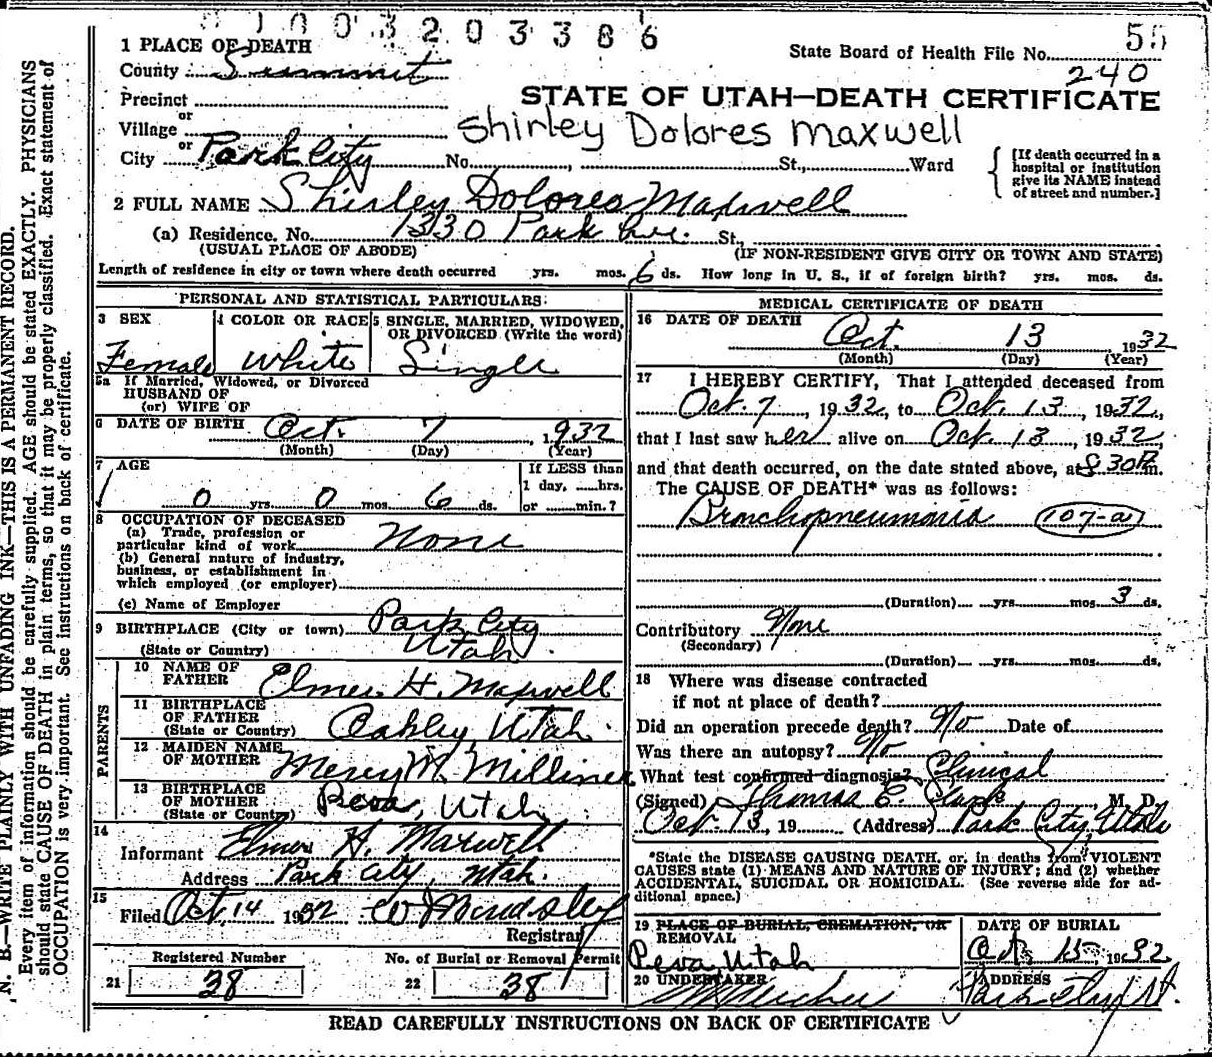 0100320 3386
55
State Board of Health File No.
240
1 PLACE OF DEATH
County Summit
STATE OF UTAH—DEATH CERTIFICATE
Precinct
or
Village
Shirley Dolores Maxwell
or
City Park City No. , St., Ward
[If death occurred in a
hospital or institution
give its NAME instead
of street and number.]
2 FULL NAME Shirley Dolores Maxwell
(a) Residence, No. 1330 Park Ave. St.,
(USUAL PLACE OF ABODE) (IF NON-RESIDENT GIVE CITY OR TOWN AND STATE)
Length of residence in city or town where death occurred yrs. mos. 6 ds. How long in U. S., if of foreign birth? yrs. mos. ds.
PERSONAL AND STATISTICAL PARTICULARS
3 SEX
Female
4 COLOR OR RACE
White
5 SINGLE, MARRIED, WIDOWED,
OR DIVORCED (Write the word)
Single
5a If Married, Widowed, or Divorced
HUSBAND OF
(or) WIFE OF
6 DATE OF BIRTH Oct. 7, 1932
(Month) (Day) (Year)
7 AGE
0 yrs. 0 mos. 6 ds.
If LESS than
1 day, hrs.
or min.?
8 OCCUPATION OF DECEASED
(a) Trade, profession or
particular kind of work None
(b) General nature of industry,
business, or establishment in
which employed (or employer)
(c) Name of Employer
9 BIRTHPLACE (City or town) Park City
(State or Country) Utah
PARENTS
10 NAME OF
FATHER Elmer H. Maxwell
11 BIRTHPLACE
OF FATHER
(State or Country) Oakley, Utah
12 MAIDEN NAME
OF MOTHER Mercy M. Milliner
13 BIRTHPLACE
OF MOTHER
(State or Country) Peoa, Utah
14
Informant Elmer H. Maxwell
Address Park City, Utah.
15
Filed Oct. 14 1932
Registrar
Registered Number
21 38
No. of Burial or Removal Permit
22 38
MEDICAL CERTIFICATE OF DEATH
16 DATE OF DEATH
Oct. 13 1932
(Month) (Day) (Year)
17 I HEREBY CERTIFY, That I attended deceased from
Oct. 7, 1932, to Oct. 13, 1932,
that I last saw her alive on Oct. 13, 1932,
and that death occurred, on the date stated above, at 8 30 P.m.
The CAUSE OF DEATH* was as follows:
Bronchopneumonia 107-a
(Duration) yrs. mos. 3 ds.
Contributory None
(Secondary)
(Duration) yrs. mos. ds.
18 Where was disease contracted
if not at place of death?
Did an operation precede death? No Date of
Was there an autopsy? No
What test confirmed diagnosis? Clinical
(Signed) Thomas E. M. D.
Oct. 13, 19 (Address) Park City, Utah
*State the DISEASE CAUSING DEATH, or, in deaths from VIOLENT
CAUSES state (1) MEANS AND NATURE OF INJURY; and (2) whether
ACCIDENTAL, SUICIDAL OR HOMICIDAL. (See reverse side for ad-
ditional space.)
19 PLACE OF BURIAL, CREMATION, OR
REMOVAL
Peoa, Utah
DATE OF BURIAL
Oct. 15, 1932
20 UNDERTAKER
ADDRESS
Park City Ut.
READ CAREFULLY INSTRUCTIONS ON BACK OF CERTIFICATE
N. B.—WRITE PLAINLY WITH UNFADING INK—THIS IS A PERMANENT RECORD.
Every item of information should be carefully supplied. AGE should be stated EXACTLY. PHYSICIANS
should state CAUSE OF DEATH in plain terms, so that it may be properly classified. Exact statement of
OCCUPATION is very important. See instructions on back of certificate.